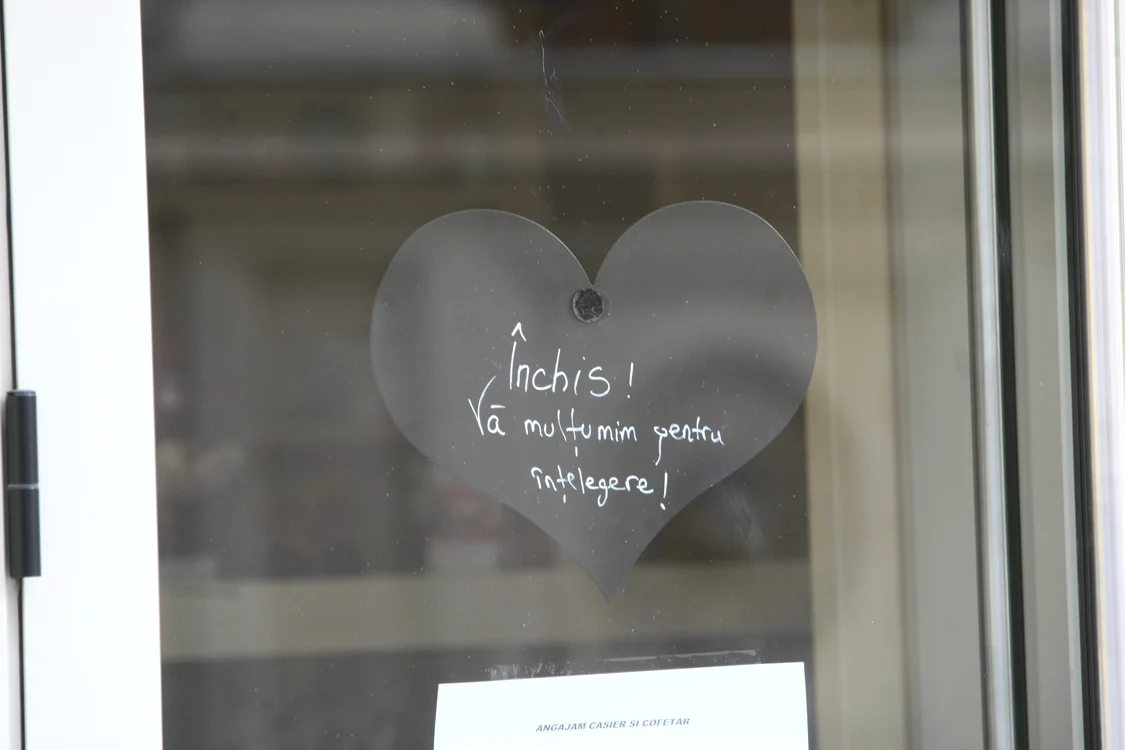 Închis!
Vă mulțumim pentru
înțelegere!
ANGAJAM CASIER SI COFETAR